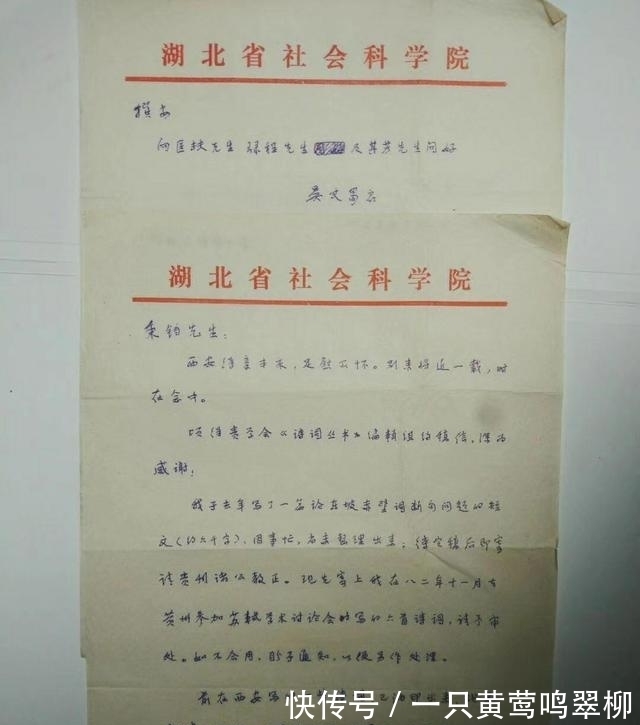 湖北省社会科学院
撰安
向匡扶先生 先生 及其先生问好
吴丈蜀启
湖北省社会科学院
秉钧先生：
西安得亲丰采，足慰下怀。别来将近一载，时
在念中。
顷得贵学会《诗词丛书》编辑组约稿信，深为
感谢！
我于去年写了一篇论东坡赤壁词断句问题的短
文（约六千字），因事忙，尚未整理出来；待定稿后即寄
请贵州诸公教正。现先寄上我在八二年十一月在
黄州参加苏轼学术讨论会时写的六首诗词，请予审
处。如不合用，盼予通知，以便另作处理。
前在西安写
快传号 / 一只黄莺鸣翠柳